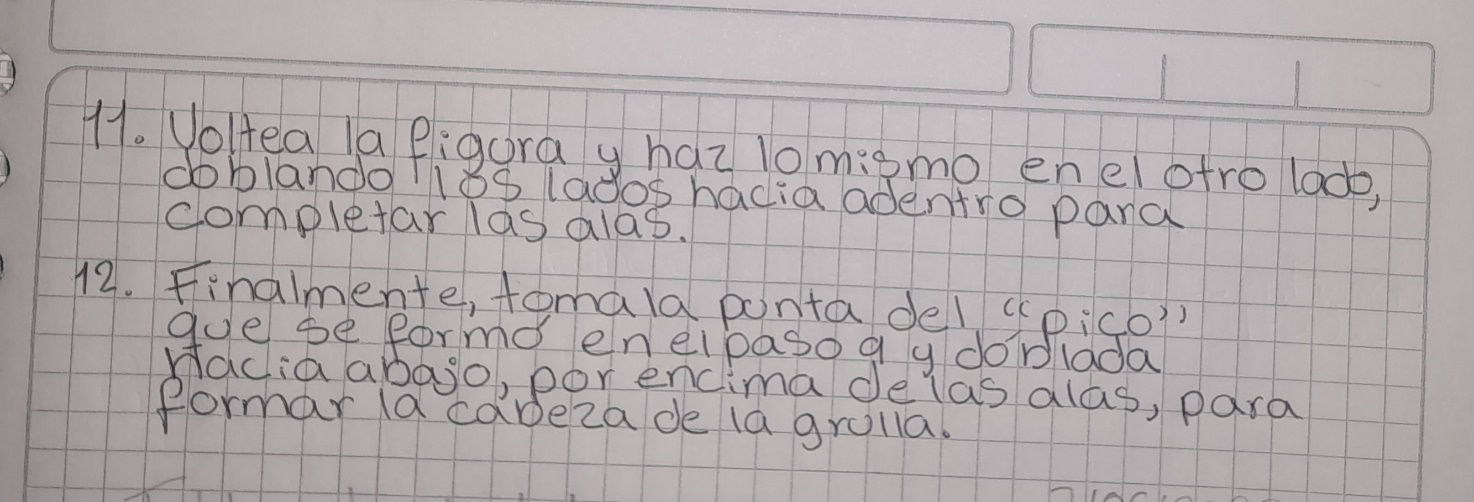 11. Voltea la figura y haz lo mismo en el otro lado,
doblando los lados hacia adentro para
completar las alas.
12. Finalmente, toma la punta del “pico”
que se formó en el paso 9 y doblada
hacia abajo, por encima de las alas, para
formar la cabeza de la grulla.